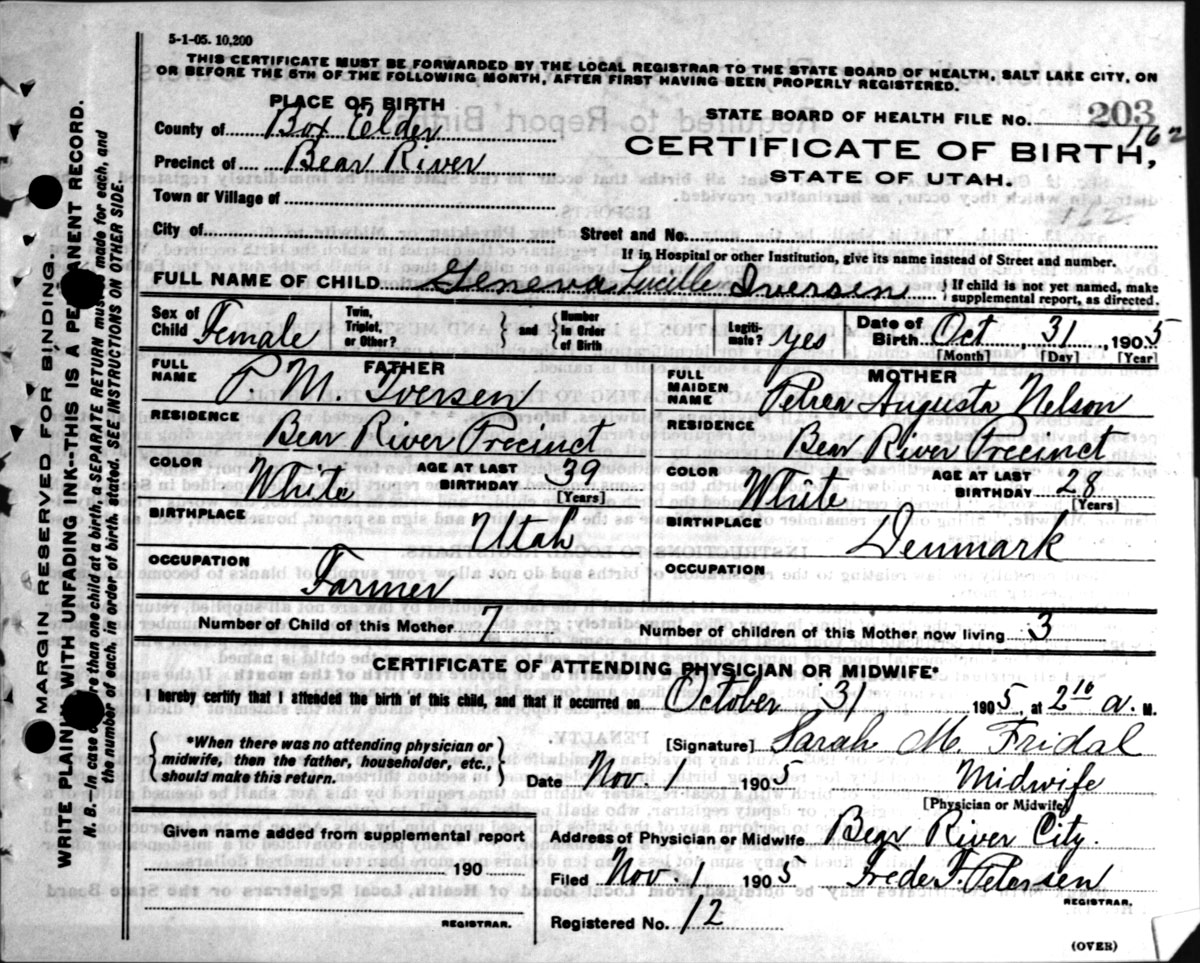 5-1-05. 10,200
THIS CERTIFICATE MUST BE FORWARDED BY THE LOCAL REGISTRAR TO THE STATE BOARD OF HEALTH, SALT LAKE CITY, ON
OR BEFORE THE 5TH OF THE FOLLOWING MONTH, AFTER FIRST HAVING BEEN PROPERLY REGISTERED.
PLACE OF BIRTH
STATE BOARD OF HEALTH FILE No. 203
162
County of Box Elder
CERTIFICATE OF BIRTH,
Precinct of Bear River
STATE OF UTAH.
Town or Village of
162
City of
Street and No.
If in Hospital or other Institution, give its name instead of Street and number.
FULL NAME OF CHILD Geneva Lucille Iversen { If child is not yet named, make
supplemental report, as directed.
Sex of Child Female Twin, Triplet, or Other? } and { Number In Order of Birth Legiti-mate? yes Date of Birth Oct 31, 1905
[Month] [Day] [Year]
FATHER
FULL NAME P. M. Iversen
RESIDENCE Bear River Precinct
COLOR White AGE AT LAST BIRTHDAY 39
[Years]
BIRTHPLACE Utah
OCCUPATION Farmer
MOTHER
FULL MAIDEN NAME Petrea Augusta Nelson
RESIDENCE Bear River Precinct
COLOR White AGE AT LAST BIRTHDAY 28
[Years]
BIRTHPLACE Denmark
OCCUPATION
Number of Child of this Mother 7 Number of children of this Mother now living 3
CERTIFICATE OF ATTENDING PHYSICIAN OR MIDWIFE*
I hereby certify that I attended the birth of this child, and that it occurred on October 31 1905, at 2 10 a. M.
{ *When there was no attending physician or
midwife, then the father, householder, etc.,
should make this return. }
[Signature] Sarah M. Fridal
Date Nov. 1 1905 Midwife
[Physician or Midwife]
Given name added from supplemental report
190
REGISTRAR.
Address of Physician or Midwife Bear River City.
Filed Nov. 1 1905 Frede F. Petersen
REGISTRAR.
Registered No. 12
(OVER)
MARGIN RESERVED FOR BINDING.
WRITE PLAINLY WITH UNFADING INK--THIS IS A PERMANENT RECORD.
N. B.—In case of more than one child at a birth, a SEPARATE RETURN must be made for each, and
the number of each, in order of birth, stated. SEE INSTRUCTIONS ON OTHER SIDE.